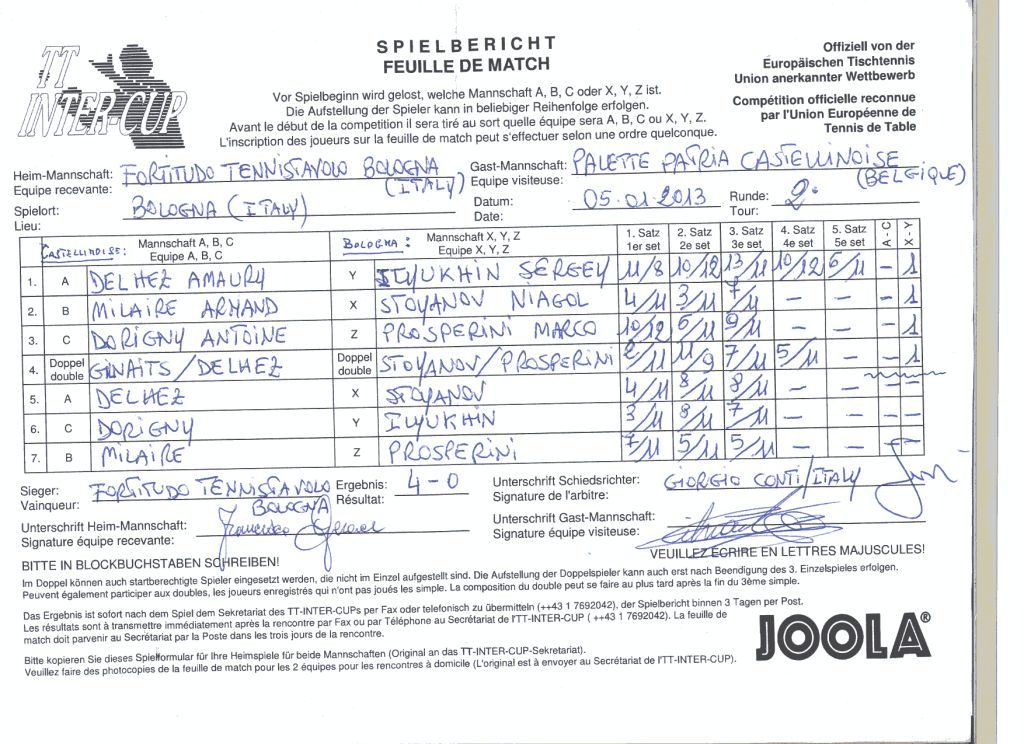 TT INTER-CUP
SPIELBERICHT
FEUILLE DE MATCH
Vor Spielbeginn wird gelost, welche Mannschaft A, B, C oder X, Y, Z ist.
Die Aufstellung der Spieler kann in beliebiger Reihenfolge erfolgen.
Avant le début de la competition il sera tiré au sort quelle équipe sera A, B, C ou X, Y, Z.
L'inscription des joueurs sur la feuille de match peut s'effectuer selon une ordre quelconque.
Offiziell von der
Europäischen Tischtennis
Union anerkannter Wettbewerb
Compétition officielle reconnue
par l'Union Européenne de
Tennis de Table
Heim-Mannschaft: FORTITUDO TENNISTAVOLO BOLOGNA
Equipe recevante: (ITALY)
Gast-Mannschaft: PALETTE PATRIA CASTELLINOISE
Equipe visiteuse: (BELGIQUE)
Spielort: BOLOGNA (ITALY)
Lieu:
Datum: 05.01.2013 Runde: 2.
Date: Tour:
CASTELLINOISE: Mannschaft A, B, C BOLOGNA: Mannschaft X, Y, Z 1. Satz 2. Satz 3. Satz 4. Satz 5. Satz A - C X - Y
Equipe A, B, C Equipe X, Y, Z 1er set 2e set 3e set 4e set 5e set
1. A DELHEZ AMAURY Y ILYUKHIN SERGEY 11/8 10/12 13/11 10/12 6/11 - 1
2. B MILAIRE ARMAND X STOYANOV NIAGOL 4/11 3/11 7/11 - - - 1
3. C DORIGNY ANTOINE Z PROSPERINI MARCO 10/12 6/11 9/11 - - - 1
4. Doppel double /DELHEZ Doppel double STOYANOV/PROSPERINI 2/11 11/9 7/11 5/11 - - 1
5. A DELHEZ X STOYANOV 4/11 8/11 8/11 - - - -
6. C DORIGNY Y ILYUKHIN 3/11 8/11 7/11 - - - -
7. B MILAIRE Z PROSPERINI 7/11 5/11 5/11 - - - -
Sieger: FORTITUDO TENNISTAVOLO Ergebnis: 4-0
Vainqueur: BOLOGNA Résultat:
Unterschrift Schiedsrichter: GIORGIO CONTI/ITALY
Signature de l'arbitre:
Unterschrift Heim-Mannschaft:
Signature équipe recevante:
Unterschrift Gast-Mannschaft:
Signature équipe visiteuse:
BITTE IN BLOCKBUCHSTABEN SCHREIBEN!
VEUILLEZ ÉCRIRE EN LETTRES MAJUSCULES!
Im Doppel können auch startberechtigte Spieler eingesetzt werden, die nicht im Einzel aufgestellt sind. Die Aufstellung der Doppelspieler kann auch erst nach Beendigung des 3. Einzelspieles erfolgen.
Peuvent également participer aux doubles, les joueurs enregistrés qui n'ont pas joués les simple. La composition du double peut se faire au plus tard après la fin du 3ème simple.
Das Ergebnis ist sofort nach dem Spiel dem Sekretariat des TT-INTER-CUPs per Fax oder telefonisch zu übermitteln (++43 1 7692042), der Spielbericht binnen 3 Tagen per Post.
Les résultats sont à transmettre immédiatement après la rencontre par Fax ou par Téléphone au Secrétariat de l'TT-INTER-CUP ( ++43 1 7692042). La feuille de
match doit parvenir au Secrétariat par la Poste dans les trois jours de la rencontre.
Bitte kopieren Sie dieses Spielformular für Ihre Heimspiele für beide Mannschaften (Original an das TT-INTER-CUP-Sekretariat).
Veuillez faire des photocopies de la feuille de match pour les 2 équipes pour les rencontres à domicile (L'original est à envoyer au Secrétariat de l'TT-INTER-CUP).
JOOLA®